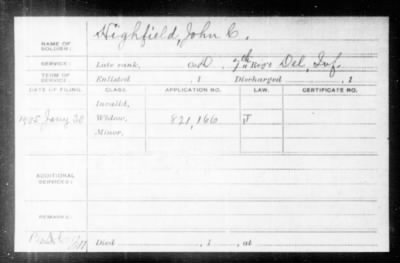 NAME OF SOLDIER: Highfield, John C.
SERVICE: Late rank, Co. D, 7th Reg't Del, Inf.
TERM OF SERVICE: Enlisted , 1 Discharged , 1
DATE OF FILING. CLASS. APPLICATION NO. LAW. CERTIFICATE NO.
Invalid,
1905 Jany 20 Widow, 821,166 J
Minor,
ADDITIONAL SERVICES:
REMARKS:
Died , 1 , at